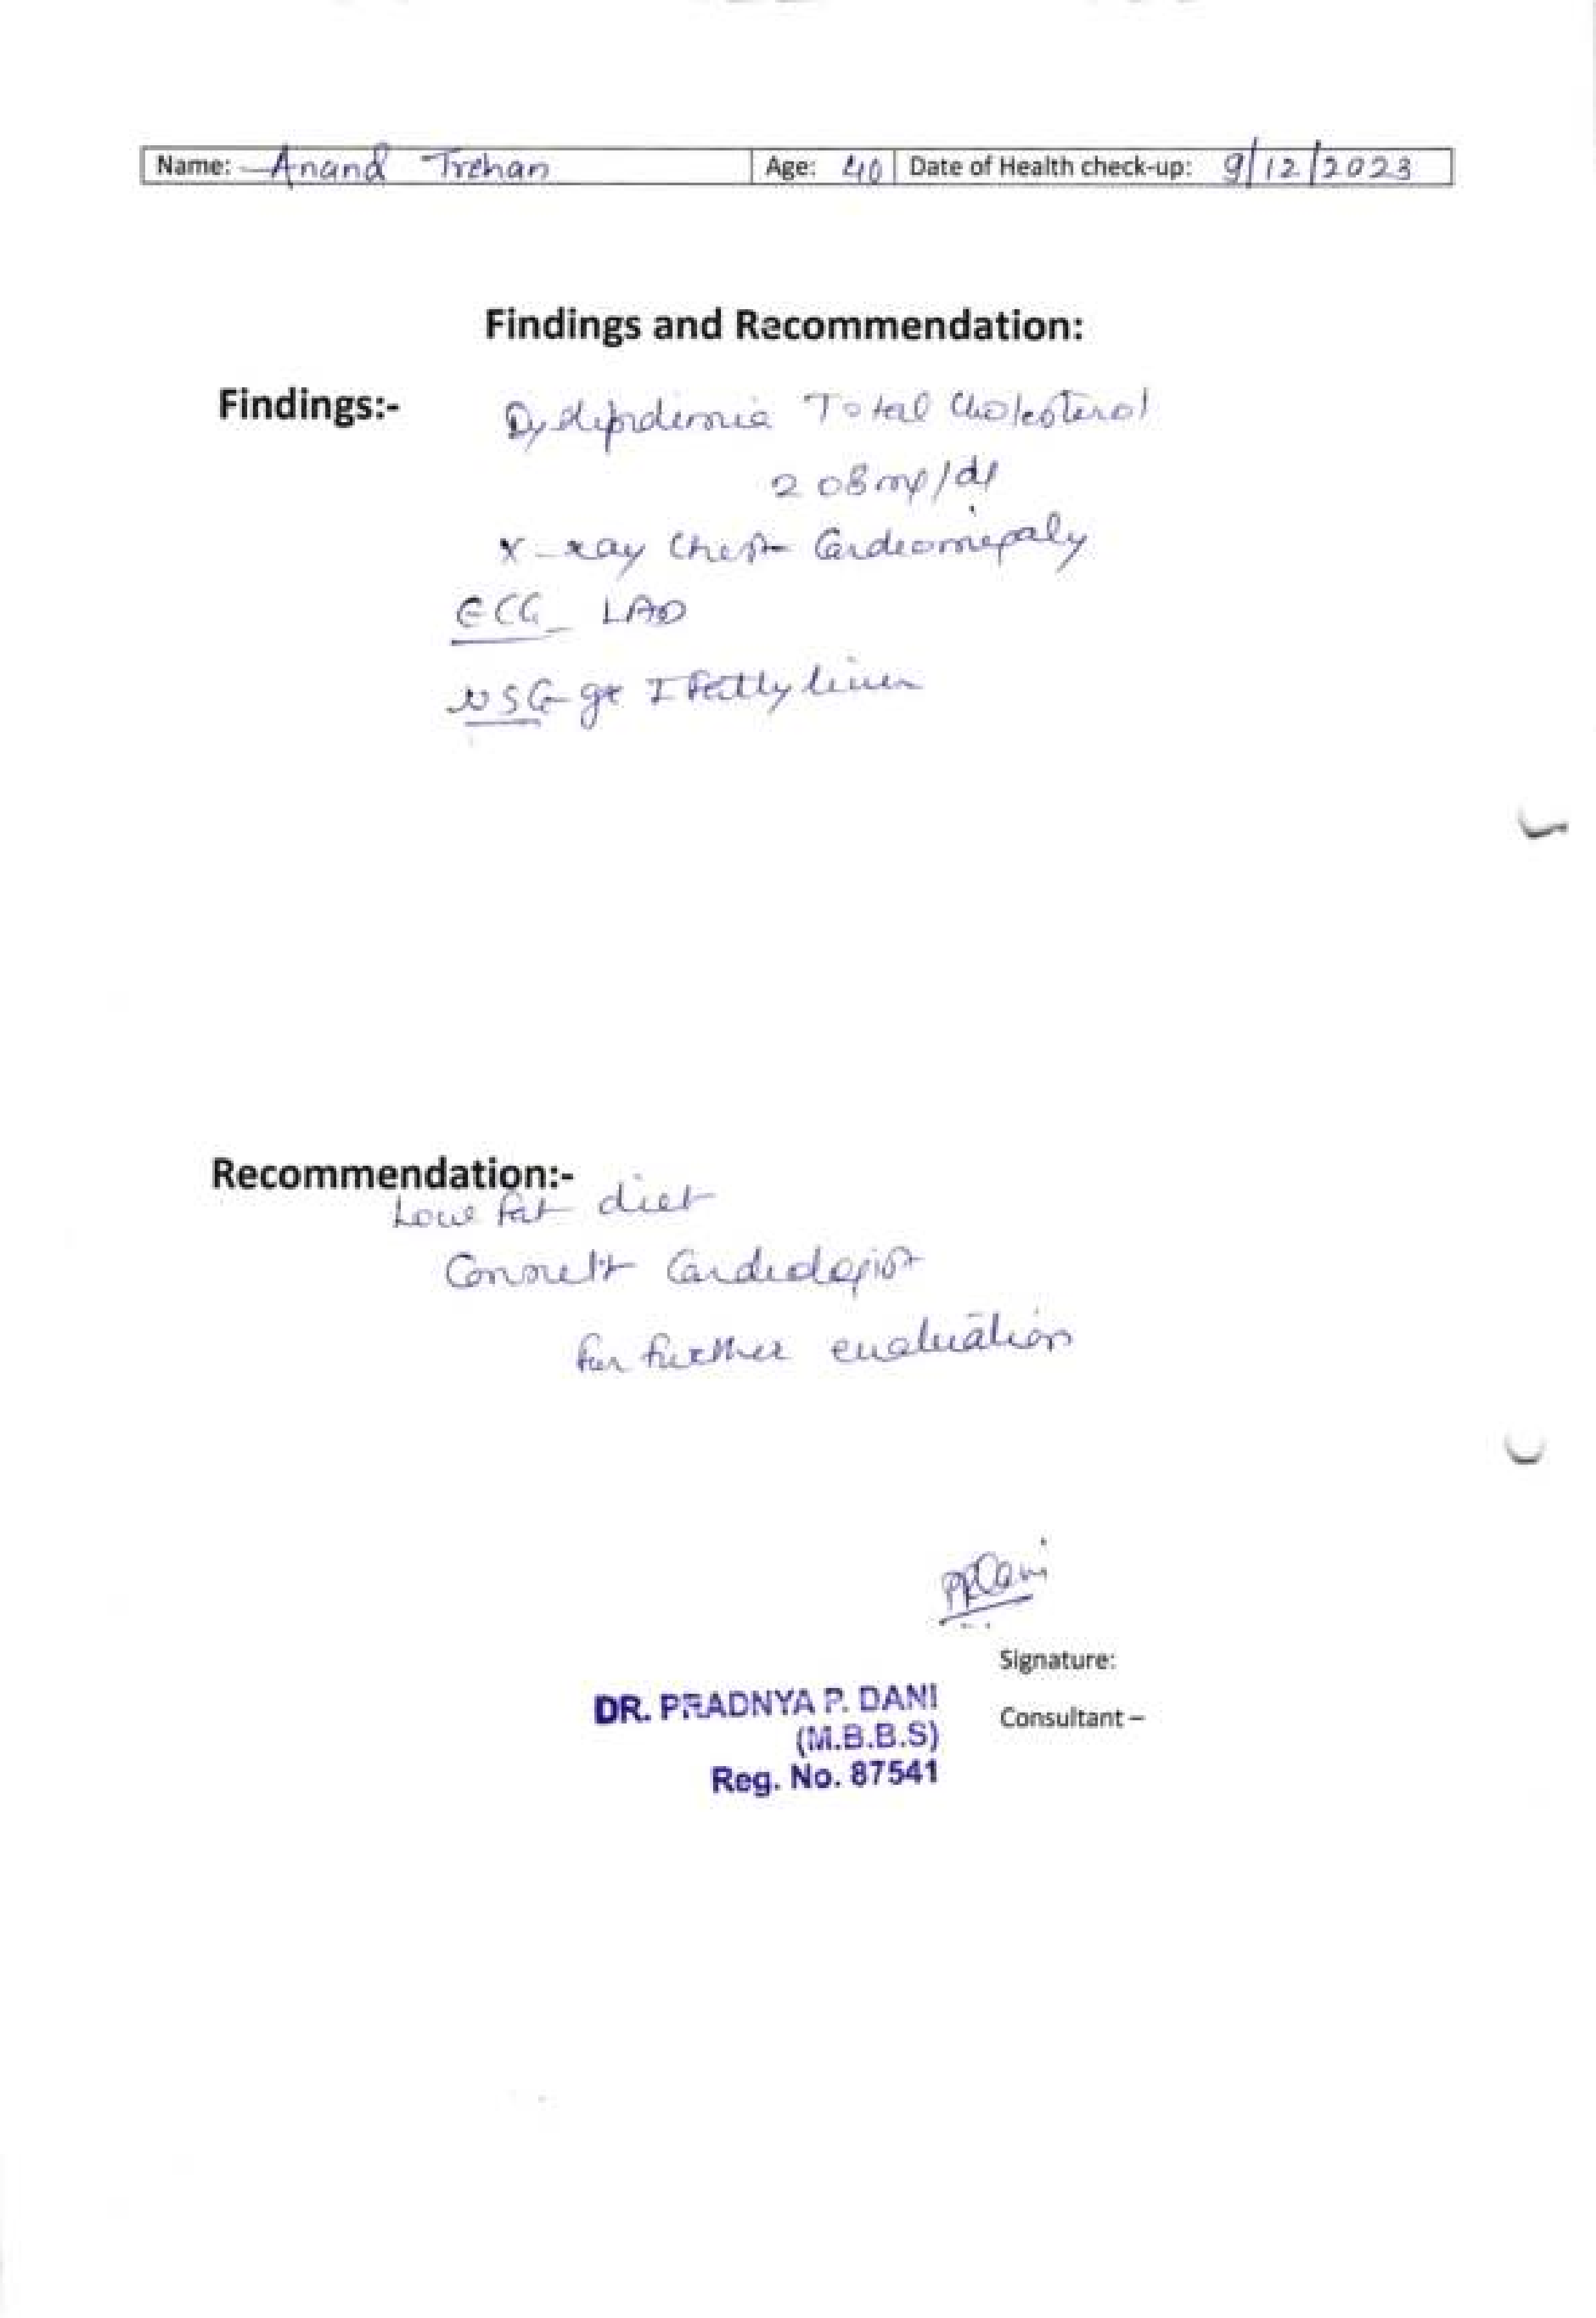 Name: Anand Trehan Age: 40 Date of Health check-up: 9/12/2023
Findings and Recommendation:
Findings:- Dyslipidemia Total Cholesterol
208 mg/dl
X-ray Chest Cardiomegaly
ECG - LAD
USG gr I fatty liver
Recommendation:-
Low fat diet
Consult Cardiologist
for further evaluation
PPDani
Signature:
DR. PRADNYA P. DANI
Consultant –
(M.B.B.S)
Reg. No. 87541